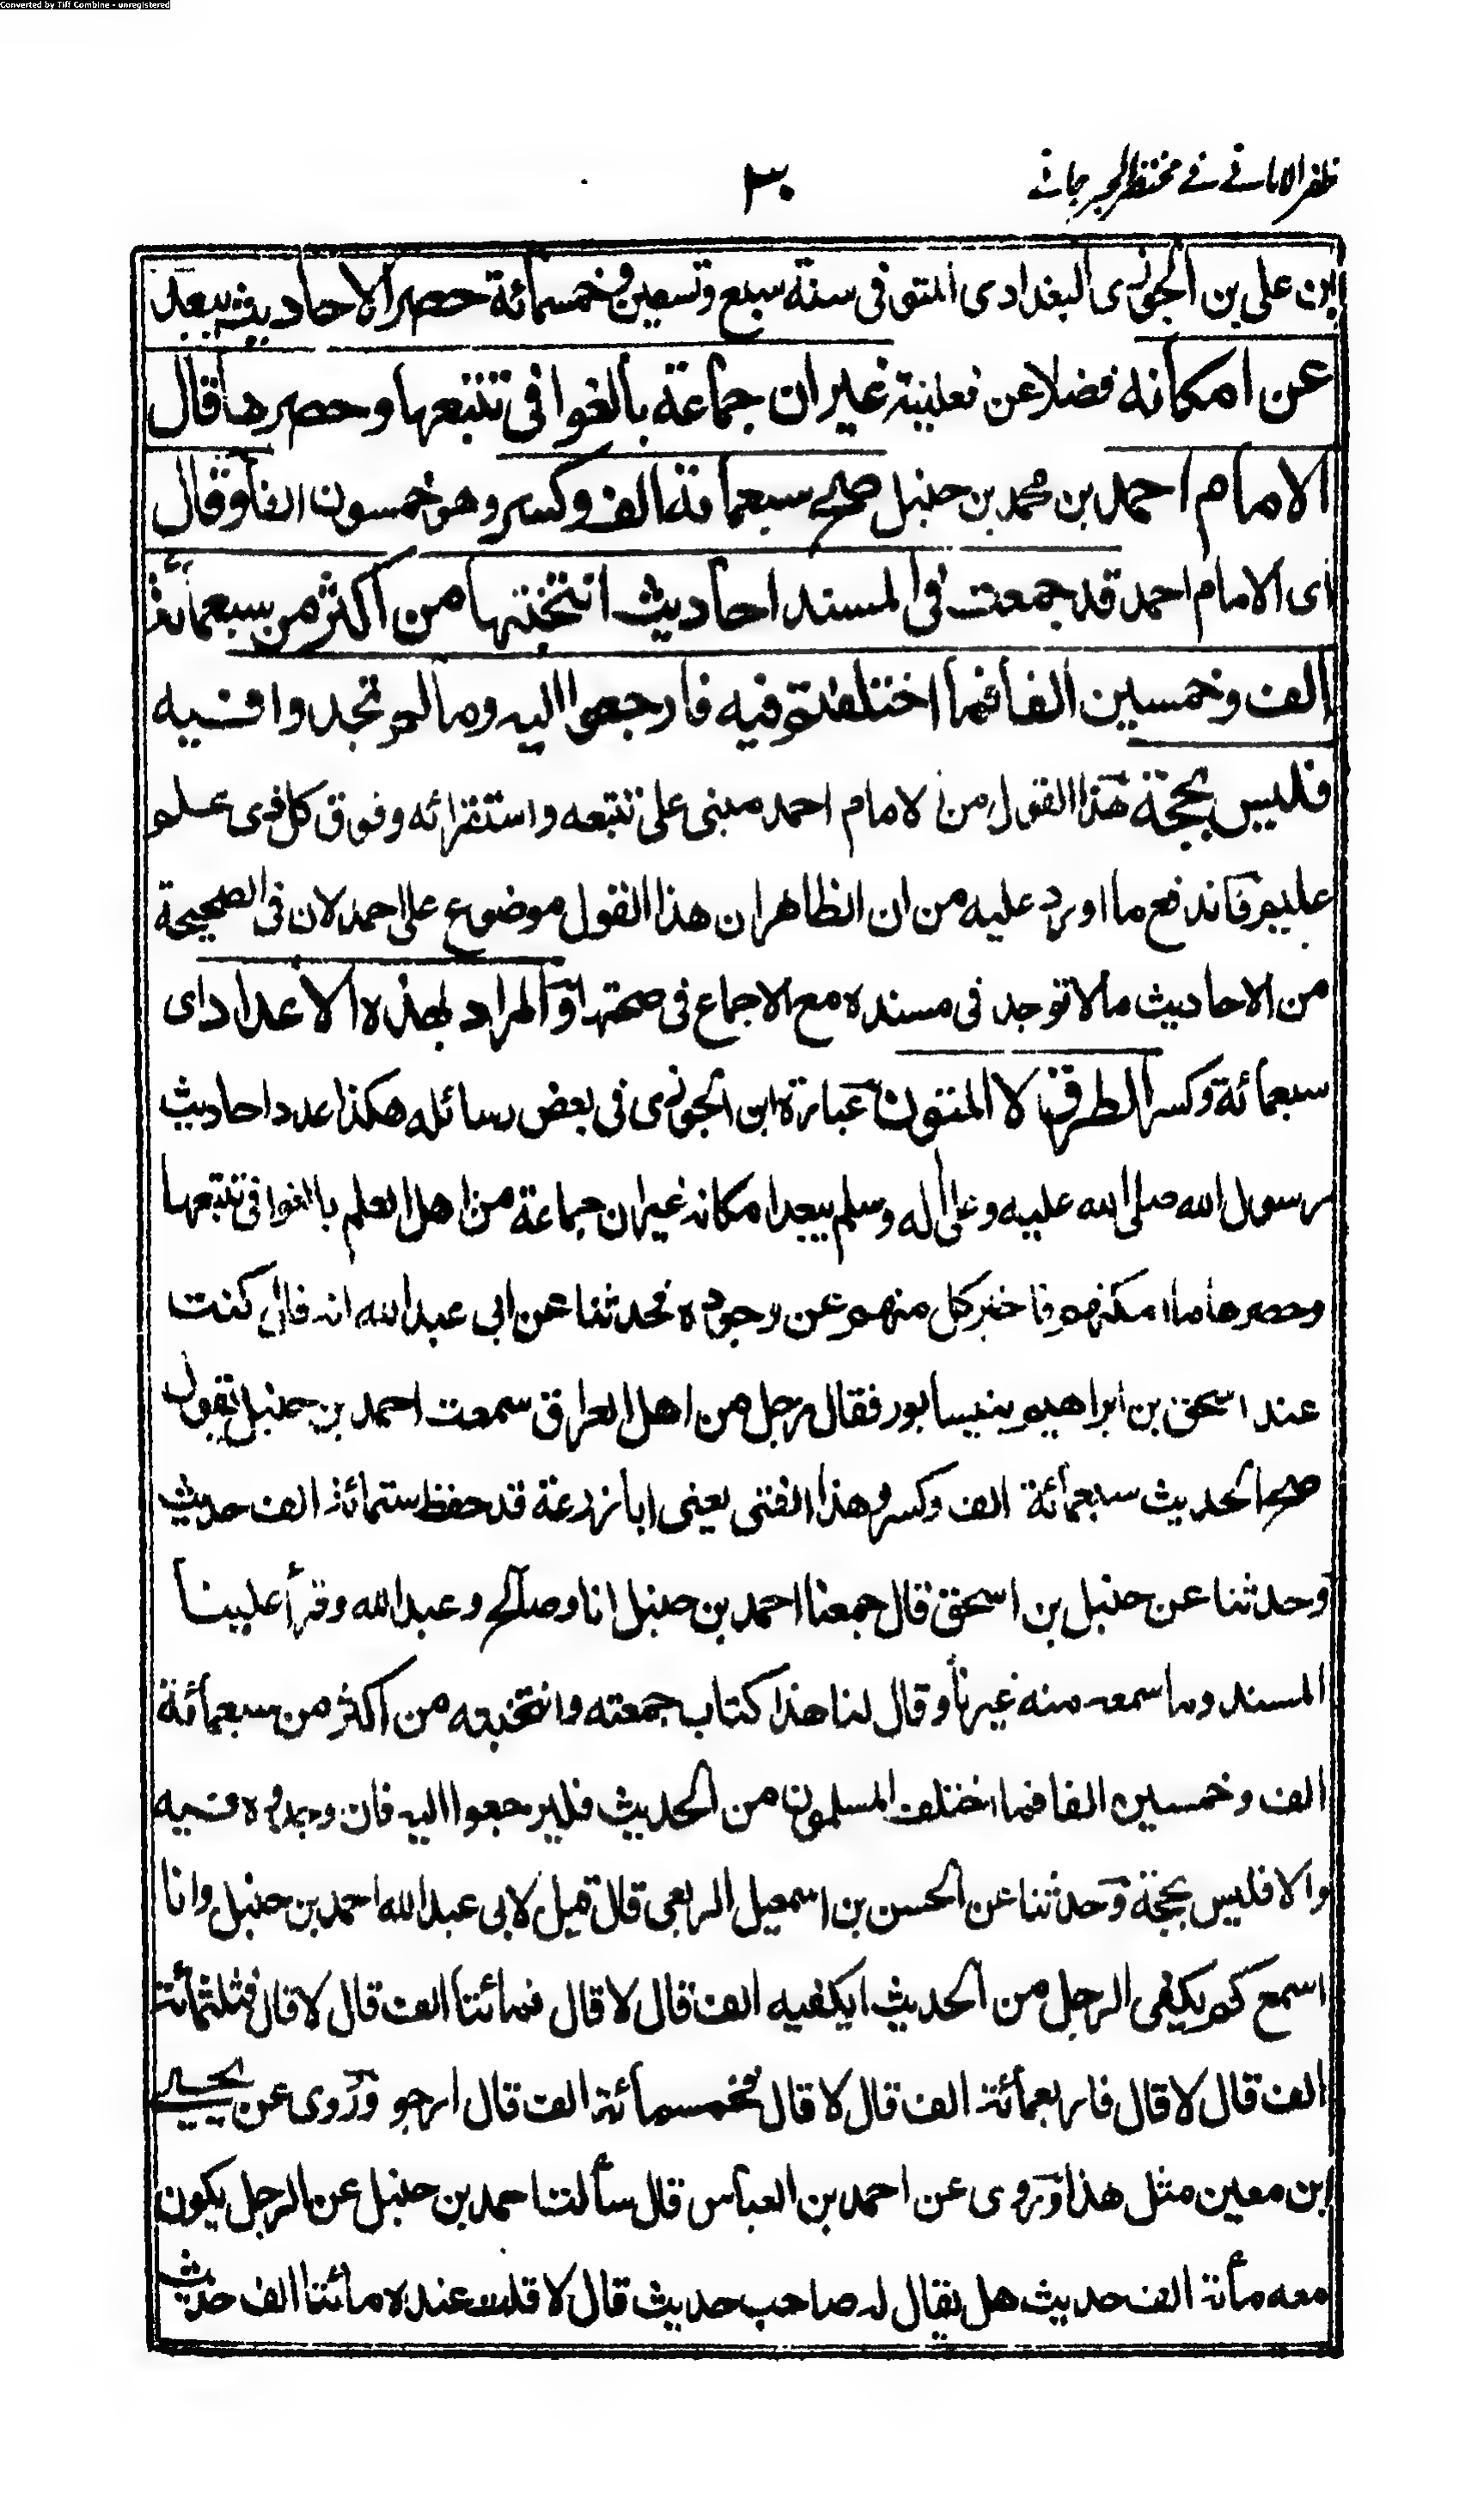 Converted by Tiff Combine - unregistered
ظفر الامانى فى مختصر الجرجانى
٣٠
ابن على بن الجوزى البغدادى المتوفى سنة سبع وتسعين وخمسمائة حصر الاحاديث يبعد
عن امكانه فضلا عن تعيينه غير ان جماعة بالغوا فى تتبعها وحصرها قال
الامام احمد بن محمد بن حنبل صح سبعمائة الف وكسر وهو خمسون الفا وقال
اى الامام احمد قد جمعت فى المسند احاديث انتخبتها من اكثر من سبعمائة
الف وخمسين الفا فما اختلفتم فيه فارجعوا اليه وما لم تجدوا فيه
فليس بحجة هذا القول من الامام احمد مبنى على تتبعه واستقرائه وفوق كل ذى علم
عليم فاندفع ما اورد عليه من ان الظاهر ان هذا القول موضوع على احمد لان فى الصحيحة
من الاحاديث ما لا توجد فى مسنده مع الاجماع فى صحتها والمراد بهذه الاعداد اى
سبعمائة وكسر الطرق لا المتون عبارة ابن الجوزى فى بعض رسائله هكذا عدد احاديث
رسول الله صلى الله عليه وعلى اله وسلم يبعد امكانه غير ان جماعة من اهل العلم بالغوا فى تتبعها
وحصرها ما امكنهم فاخبر كل منهم عن وجوده فحدثنا عن ابى عبد الله انه قال كنت
عند اسحق بن ابراهيم بنيسابور فقال رجل من اهل العراق سمعت احمد بن حنبل يقول
صح الحديث سبعمائة الف وكسر وهذا الفتى يعنى ابا زرعة قد حفظ ستمائة الف حديث
وحدثنا عن حنبل بن اسحق قال جمعنا احمد بن حنبل انا وصالح وعبد الله وقرأ علينا
المسند وما سمعه منه غيرنا وقال لنا هذا كتاب جمعته وانتخبته من اكثر من سبعمائة
الف وخمسين الفا فما اختلف المسلمون من الحديث فليرجعوا اليه فان وجدتموه فيه
والا فليس بحجة وحدثنا عن الحسن بن اسمعيل الربعى قال قيل لابى عبد الله احمد بن حنبل وانا
اسمع كم يكفى الرجل من الحديث ايكفيه الف قال لا قال فمائتا الف قال لا قال فثلثمائة
الف قال لا قال فاربعمائة الف قال لا قال فخمسمائة الف قال ارجو وروى عن يحيى
ابن معين مثل هذا وروى عن احمد بن العباس قال سألت احمد بن حنبل عن الرجل يكون
معه مأتة الف حديث هل يقال له صاحب حديث قال لا قلت عنده مائتا الف حديث